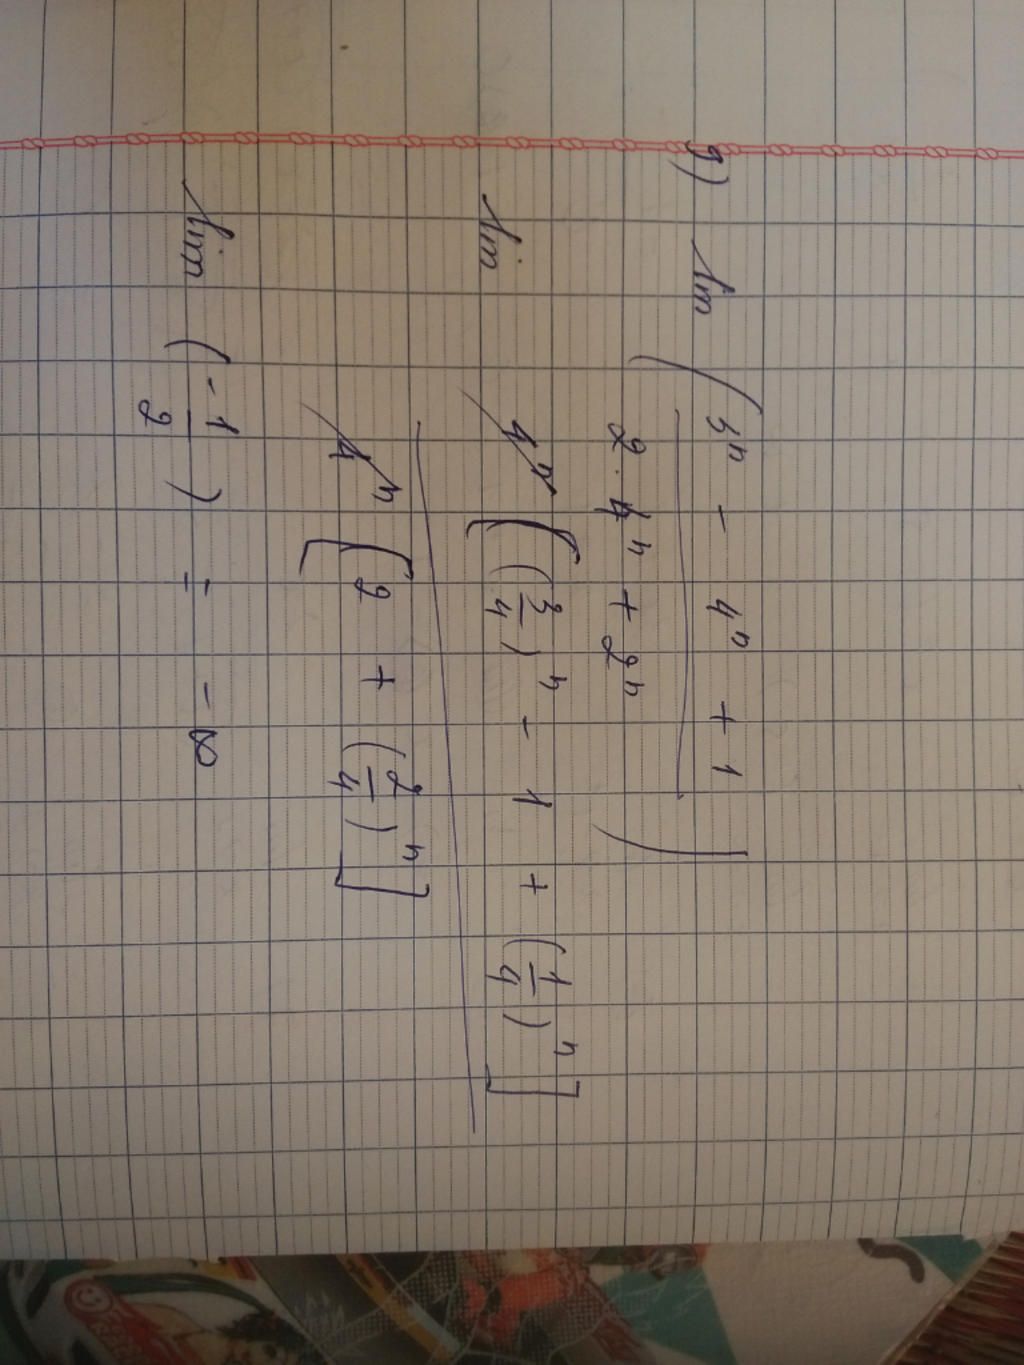 g) lim ( 3ⁿ - 4ⁿ + 1
2 · 4ⁿ + 2ⁿ )
lim 4ⁿ [ (3/4)ⁿ - 1 + (1/4)ⁿ ]
4ⁿ [ 2 + (2/4)ⁿ ]
lim ( -1/2 ) = -∞